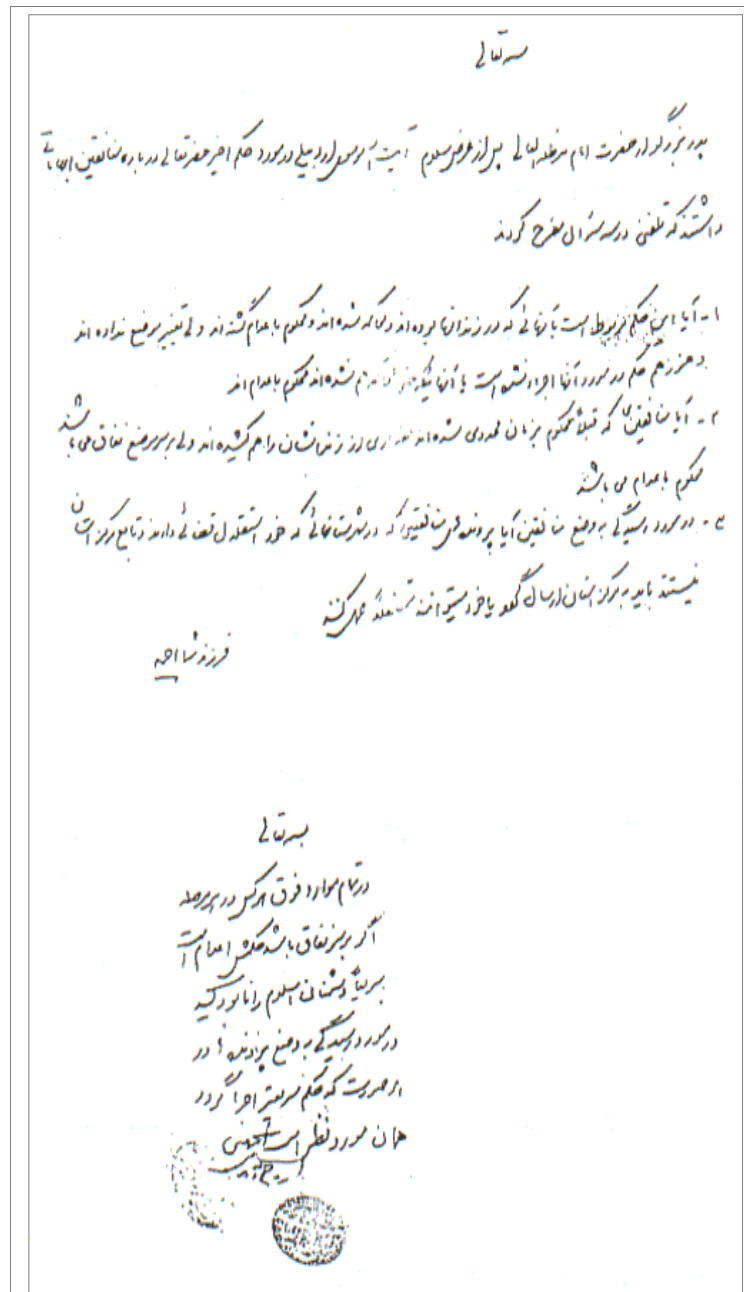 بسمه تعالی
پدر بزرگوار حضرت امام مدظله العالی پس از عرض سلام آیت الله موسوی اردبیلی در مورد حکم اخیر حضرتعالی درباره منافقین ابهاماتی
داشتند که تلفنی در سه سئوال مطرح کردند
۱- آیا این حکم مربوط است به آنهائی که در زندانها بوده‌اند و محاکمه شده‌اند و محکوم باعدام گشته‌اند ولی تغییر موضع نداده‌اند
و هنوز هم حکم در مورد آنها اجرا نشده است یا آنهائیکه حتی محاکمه هم نشده‌اند محکوم باعدام اند
۲- آیا منافقینی که قبلاً محکوم بزمان محدودی شده‌اند و مقداری از زندانشان را هم کشیده‌اند ولی بر سر موضع نفاق می‌باشند
محکوم باعدام می باشند
۳- در مورد رسیدگی به وضع منافقین آیا پرونده‌های منافقینی که در شهرستانهائی که خود استقلال قضائی دارند و تابع مرکز استان
نیستند باید به مرکز استان ارسال گردد یا خود میتوانند مستقلاً عمل کنند
فرزند شما احمد
بسمه تعالی
در تمام موارد فوق هر کس در هر مرحله
اگر بر سر نفاق باشد حکمش اعدام است
سریعاً دشمنان اسلام را نابود کنید
در مورد رسیدگی به وضع پرونده‌ها در
هر صورت که حکم سریعتر اجرا گردد
همان مورد نظر است
روح الله الموسوی الخمینی